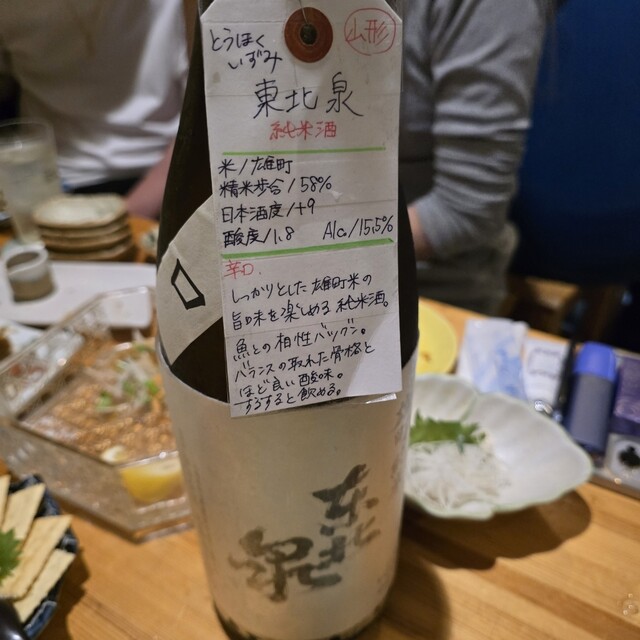 とうほく
いずみ
山形
東北泉
純米酒
米/雄町
精米歩合/58%
日本酒度/+9
酸度/1.8 Alc./15.5%
辛口.
しっかりとした雄町米の
旨味を楽しめる純米酒。
魚との相性バツグン。
バランスの取れた骨格と
ほど良い酸味。
するすると飲める。
東北
泉